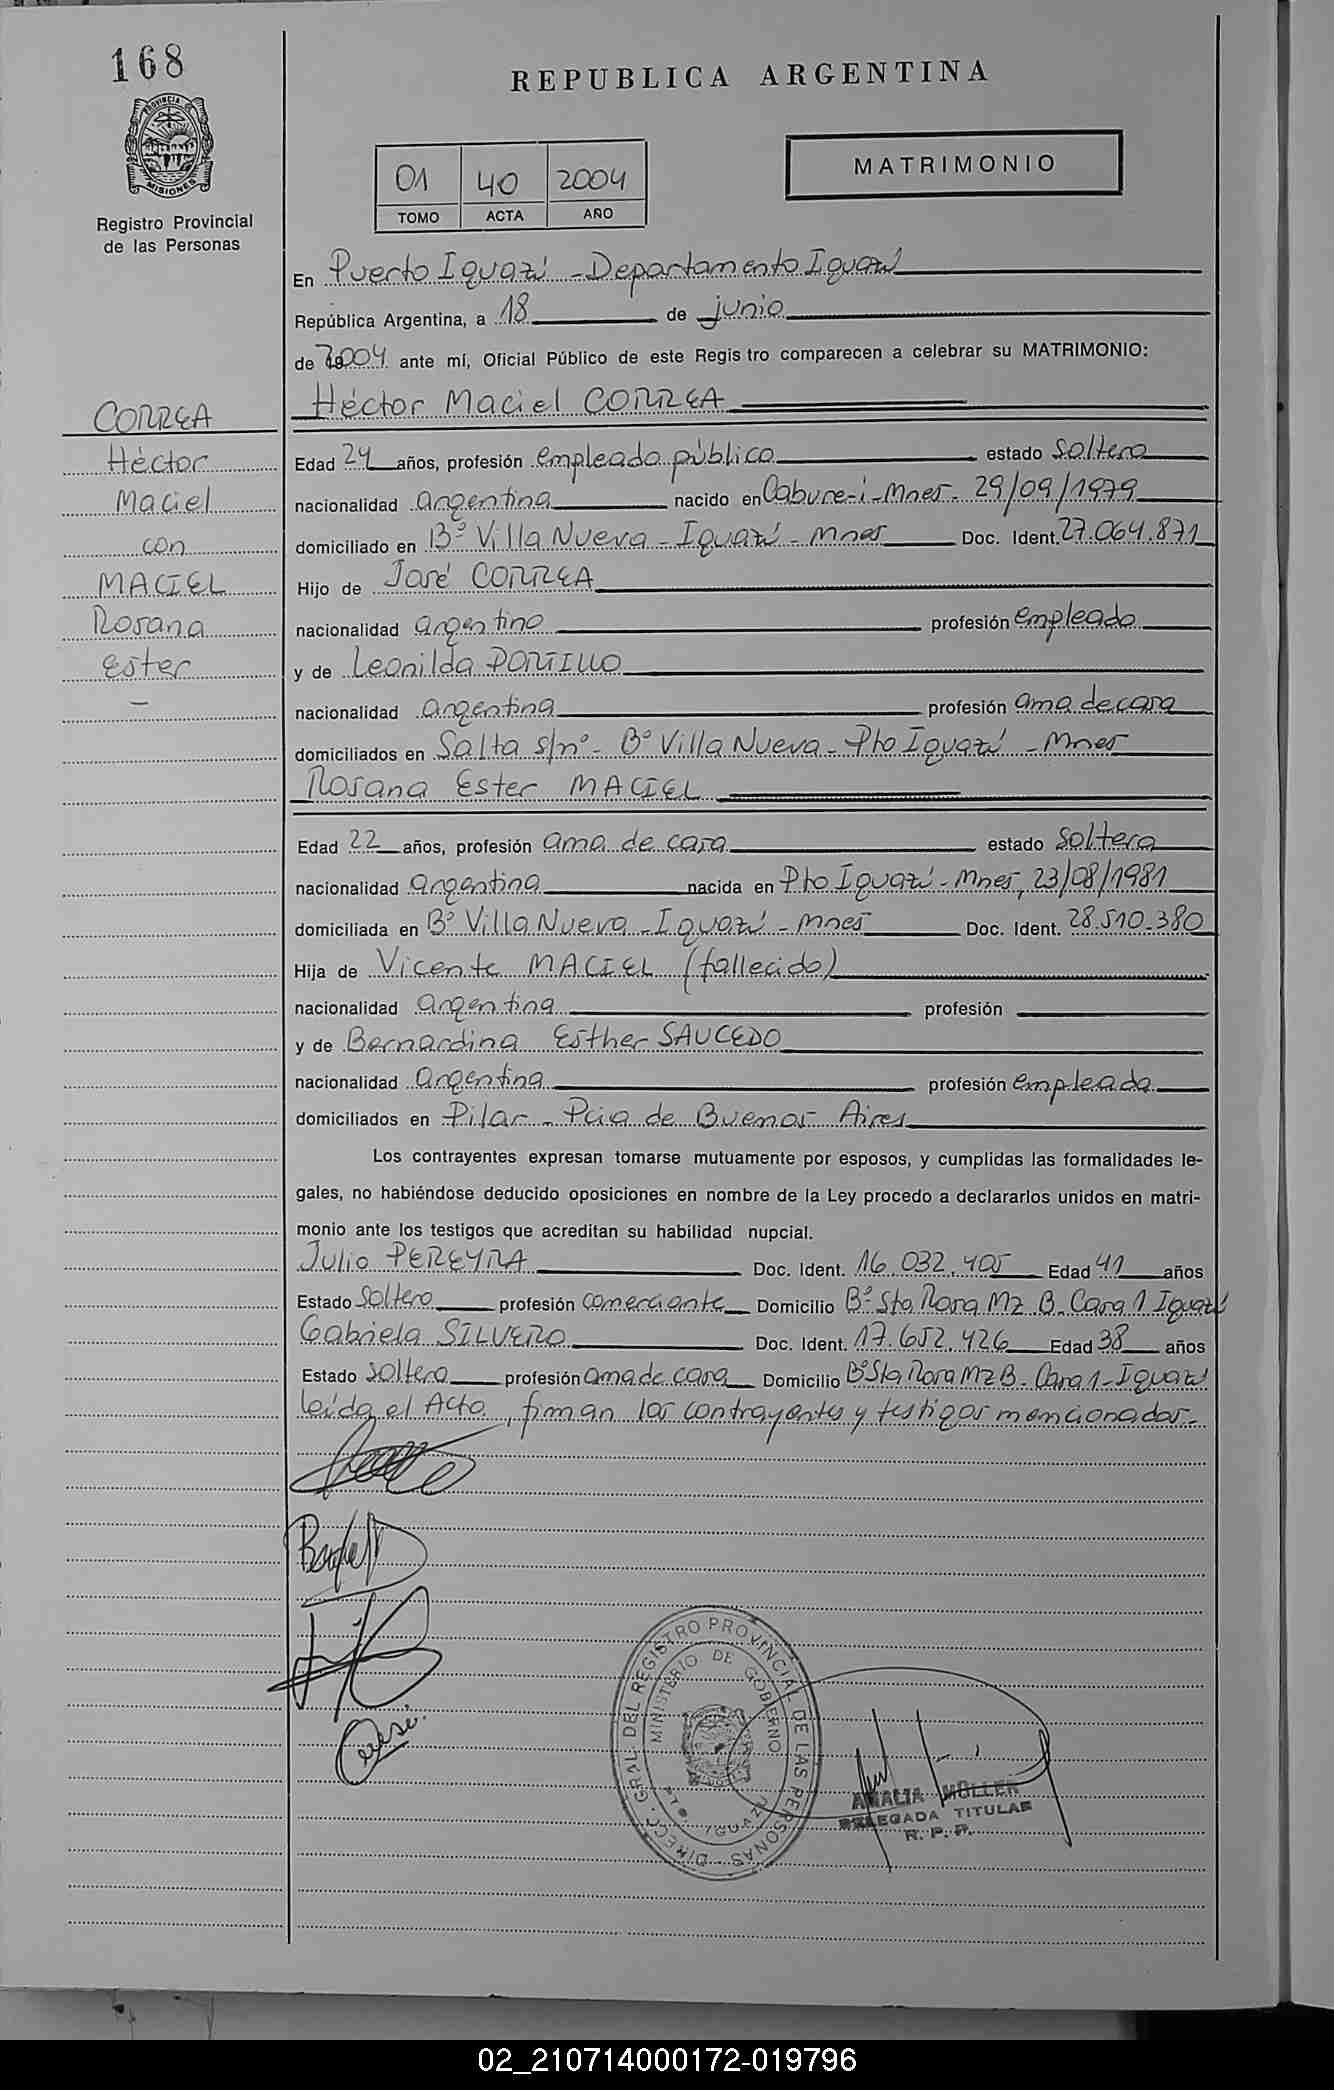 168
REPUBLICA ARGENTINA
PROVINCIA DE MISIONES
Registro Provincial
de las Personas
01 40 2004
TOMO ACTA AÑO
MATRIMONIO
En Puerto Iguazú - Departamento Iguazú
República Argentina, a 18 de junio
de 2004 ante mí, Oficial Público de este Registro comparecen a celebrar su MATRIMONIO:
Héctor Maciel CORREA
CORREA
Héctor
Maciel
con
MACIEL
Rosana
Ester
Edad 24 años, profesión empleado público estado soltero
nacionalidad argentina nacido en Cabure-i - Mnes. 29/09/1979
domiciliado en Bº Villa Nueva - Iguazú - Mnes Doc. Ident. 27.064.871
Hijo de José CORREA
nacionalidad argentino profesión empleado
y de Leonilda PORTILLO
nacionalidad argentina profesión ama de casa
domiciliados en Salta s/nº - Bº Villa Nueva - Pto Iguazú - Mnes
Rosana Ester MACIEL
Edad 22 años, profesión ama de casa estado soltera
nacionalidad argentina nacida en Pto Iguazú - Mnes, 23/08/1981
domiciliada en Bº Villa Nueva - Iguazú - Mnes Doc. Ident. 28.510.380
Hija de Vicente MACIEL (fallecido)
nacionalidad argentina profesión
y de Bernardina Esther SAUCEDO
nacionalidad argentina profesión empleada
domiciliados en Pilar - Pcia de Buenos Aires
Los contrayentes expresan tomarse mutuamente por esposos, y cumplidas las formalidades le-
gales, no habiéndose deducido oposiciones en nombre de la Ley procedo a declararlos unidos en matri-
monio ante los testigos que acreditan su habilidad nupcial.
Julio PEREYRA Doc. Ident. 16.032.405 Edad 41 años
Estado soltero profesión comerciante Domicilio Bº Sta Rosa Mz B - Casa 1 Iguazú
Gabriela SILVERO Doc. Ident. 17.652.426 Edad 38 años
Estado soltera profesión ama de casa Domicilio Bº Sta Rosa Mz B - Casa 1 - Iguazú
leída el Acta, firman los contrayentes y testigos mencionados.
DIRECC. GRAL. DEL REGISTRO PROVINCIAL DE LAS PERSONAS
MINISTERIO DE GOBIERNO
PTO IGUAZU
AMALIA MÜLLER
DELEGADA TITULAR
R. P. P.
02_210714000172-019796